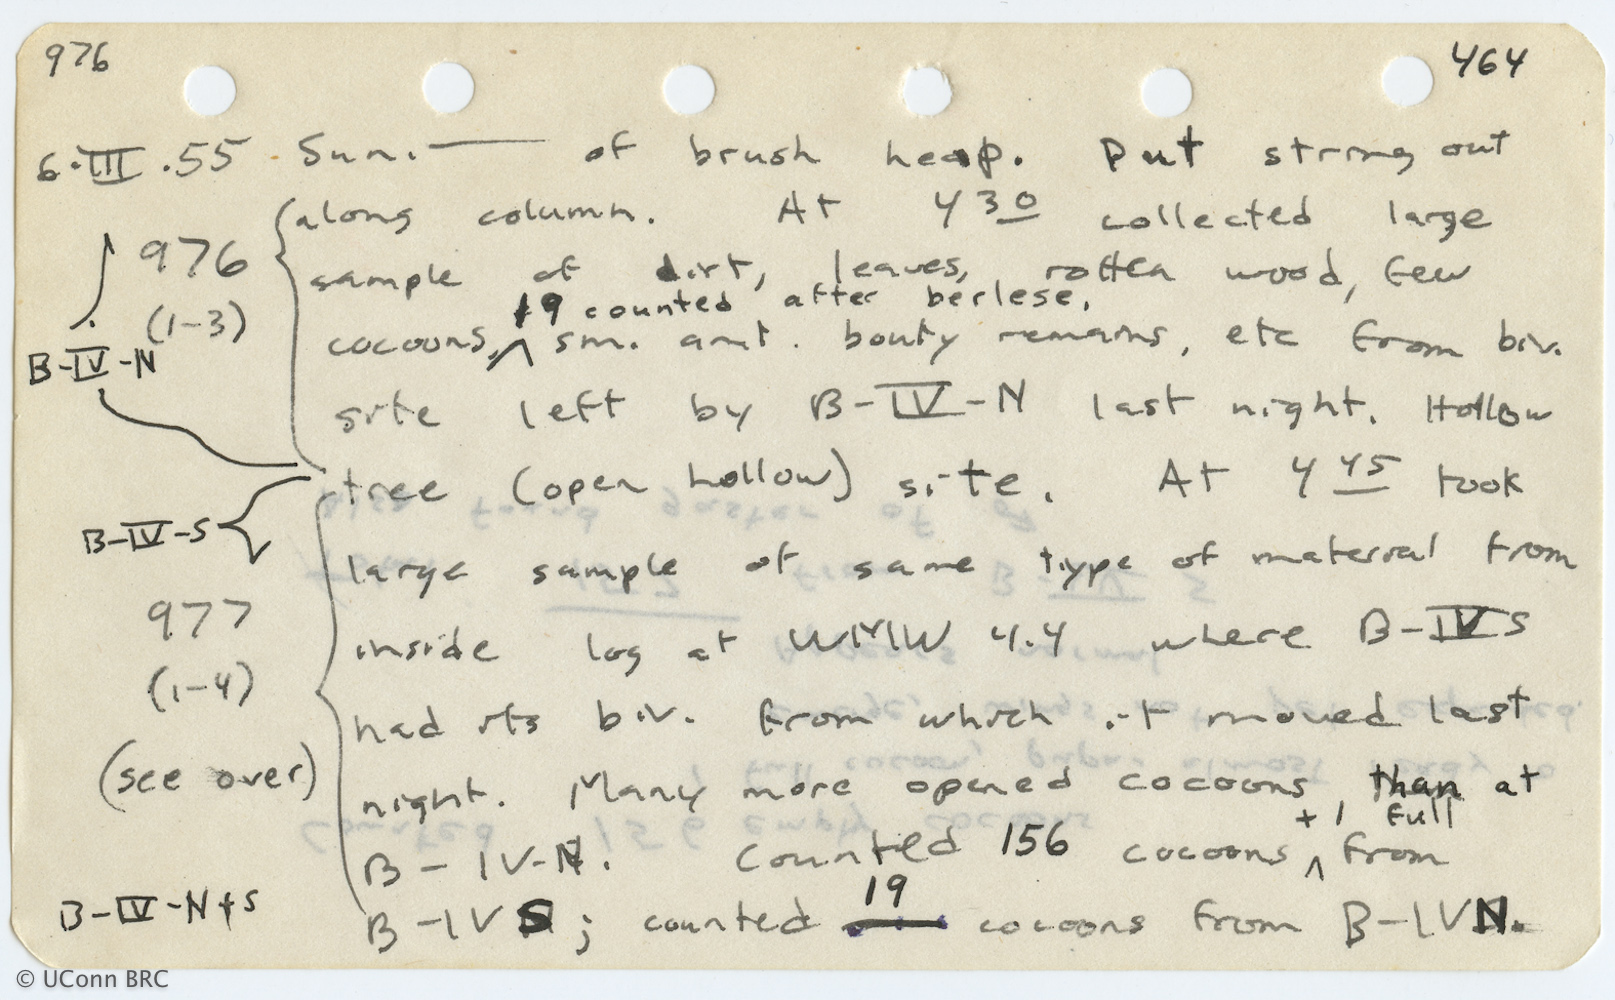 976 464
6.III.55 Sun. —— of brush heap. Put string out
along column. At 4 30 collected large
976
sample of dirt, leaves, rotten wood, few
19 counted after berlese.
(1-3)
cocoons, ^ sm. amt. booty remains, etc from biv.
B-IV-N
site left by B-IV-N last night. Hollow
tree (open hollow) site. At 4 45 took
B-IV-S
large sample of same type of material from
977
inside log at WMW 4.4 where B-IV S
(1-4)
had its biv. from which it moved last
(see over)
night. Many more opened cocoons, than at
+ 1 full
B-IV-N. Counted 156 cocoons ^ from
B-IV-N+S
19
B-IV S; counted cocoons from B-IV N.
© UConn BRC